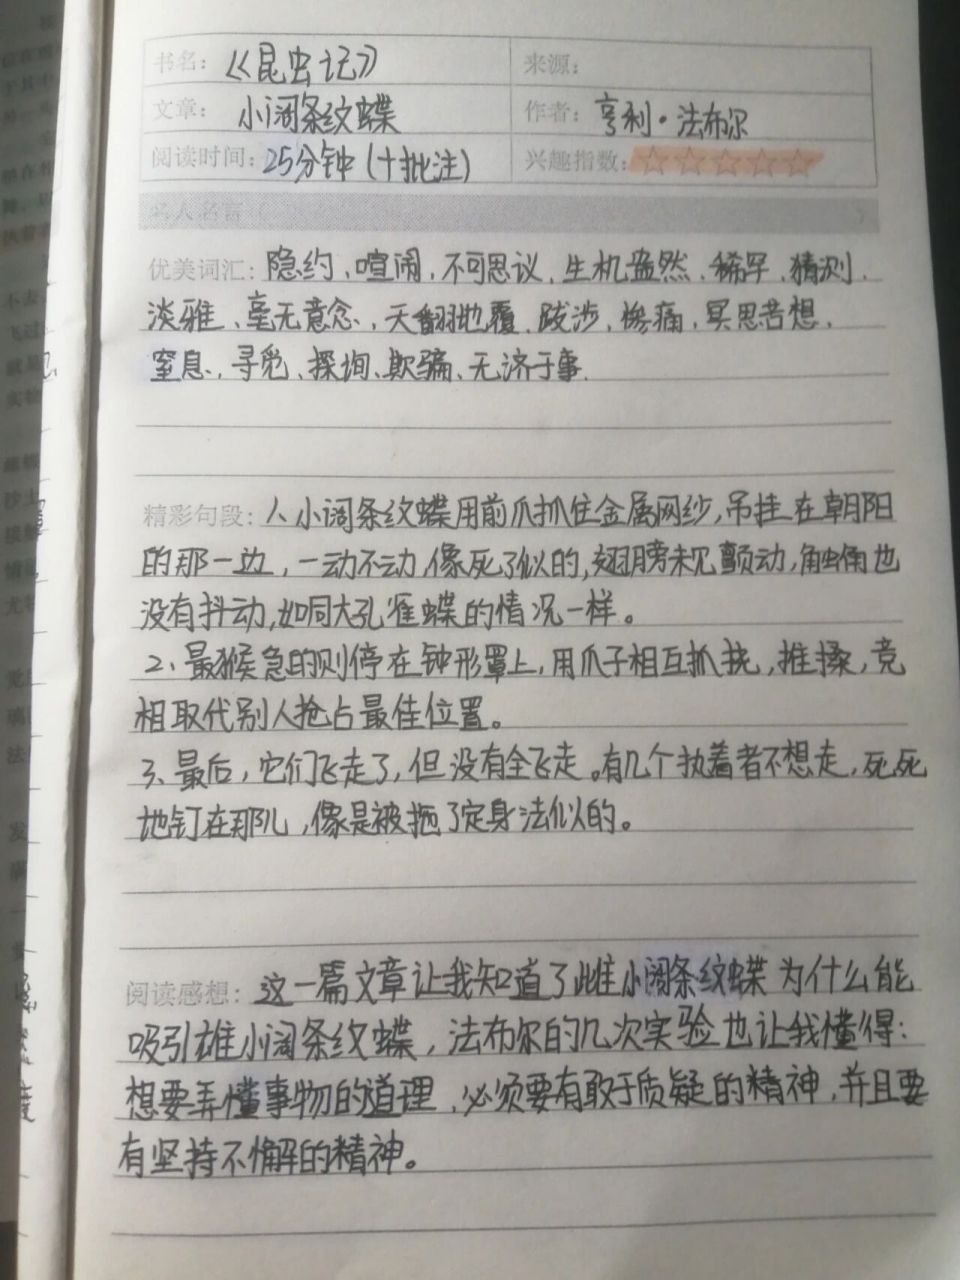 书名：《昆虫记》 来源：
文章：小阔条纹蝶 作者：亨利·法布尔
阅读时间：25分钟（十批注） 兴趣指数：☆☆☆☆☆
名人名言
优美词汇：隐约、喧闹、不可思议、生机盎然、稀罕、猜测、
淡雅、毫无意念、天翻地覆、跋涉、惨痛、冥思苦想、
窒息、寻觅、探询、欺骗、无济于事.
精彩句段：1、小阔条纹蝶用前爪抓住金属网纱，吊挂在朝阳
的那一边，一动不动，像死了似的，翅膀未见颤动，触角也
没有抖动，如同大孔雀蝶的情况一样。
2、最猴急的则停在钟形罩上，用爪子相互抓挠，推搡，竞
相取代别人抢占最佳位置。
3、最后，它们飞走了，但没有全飞走。有几个执着者不想走，死死
地钉在那儿，像是被施了定身法似的。
阅读感想：这一篇文章让我知道了雌小阔条纹蝶为什么能
吸引雄小阔条纹蝶，法布尔的几次实验也让我懂得：
想要弄懂事物的道理，必须要有敢于质疑的精神，并且要
有坚持不懈的精神。